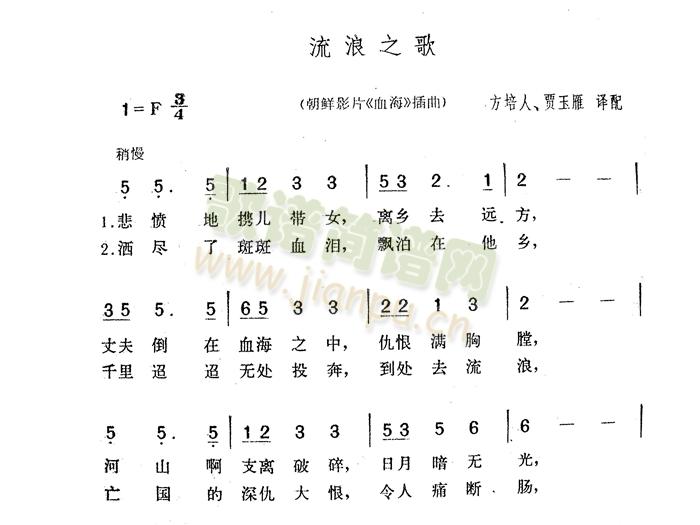 流浪之歌
1=F 3/4 (朝鲜影片《血海》插曲) 方培人、贾玉雁 译配
稍慢
5 5. 5 | 1 2 3 3 | 5 3 2. 1 | 2 — — |
1.悲愤地携儿带女,离乡去远方,
2.洒尽了斑斑血泪,飘泊在他乡,
3 5 5. 5 | 6 5 3 3 | 2 2 1 3 | 2 — — |
丈夫倒在血海之中,仇恨满胸膛,
千里迢迢无处投奔,到处去流浪,
5 5. 5 | 1 2 3 3 | 5 3 5 6 | 6 — — |
河山啊支离破碎,日月暗无光,
亡国的深仇大恨,令人痛断肠,
歌谱简谱网
www.jianpu.cn